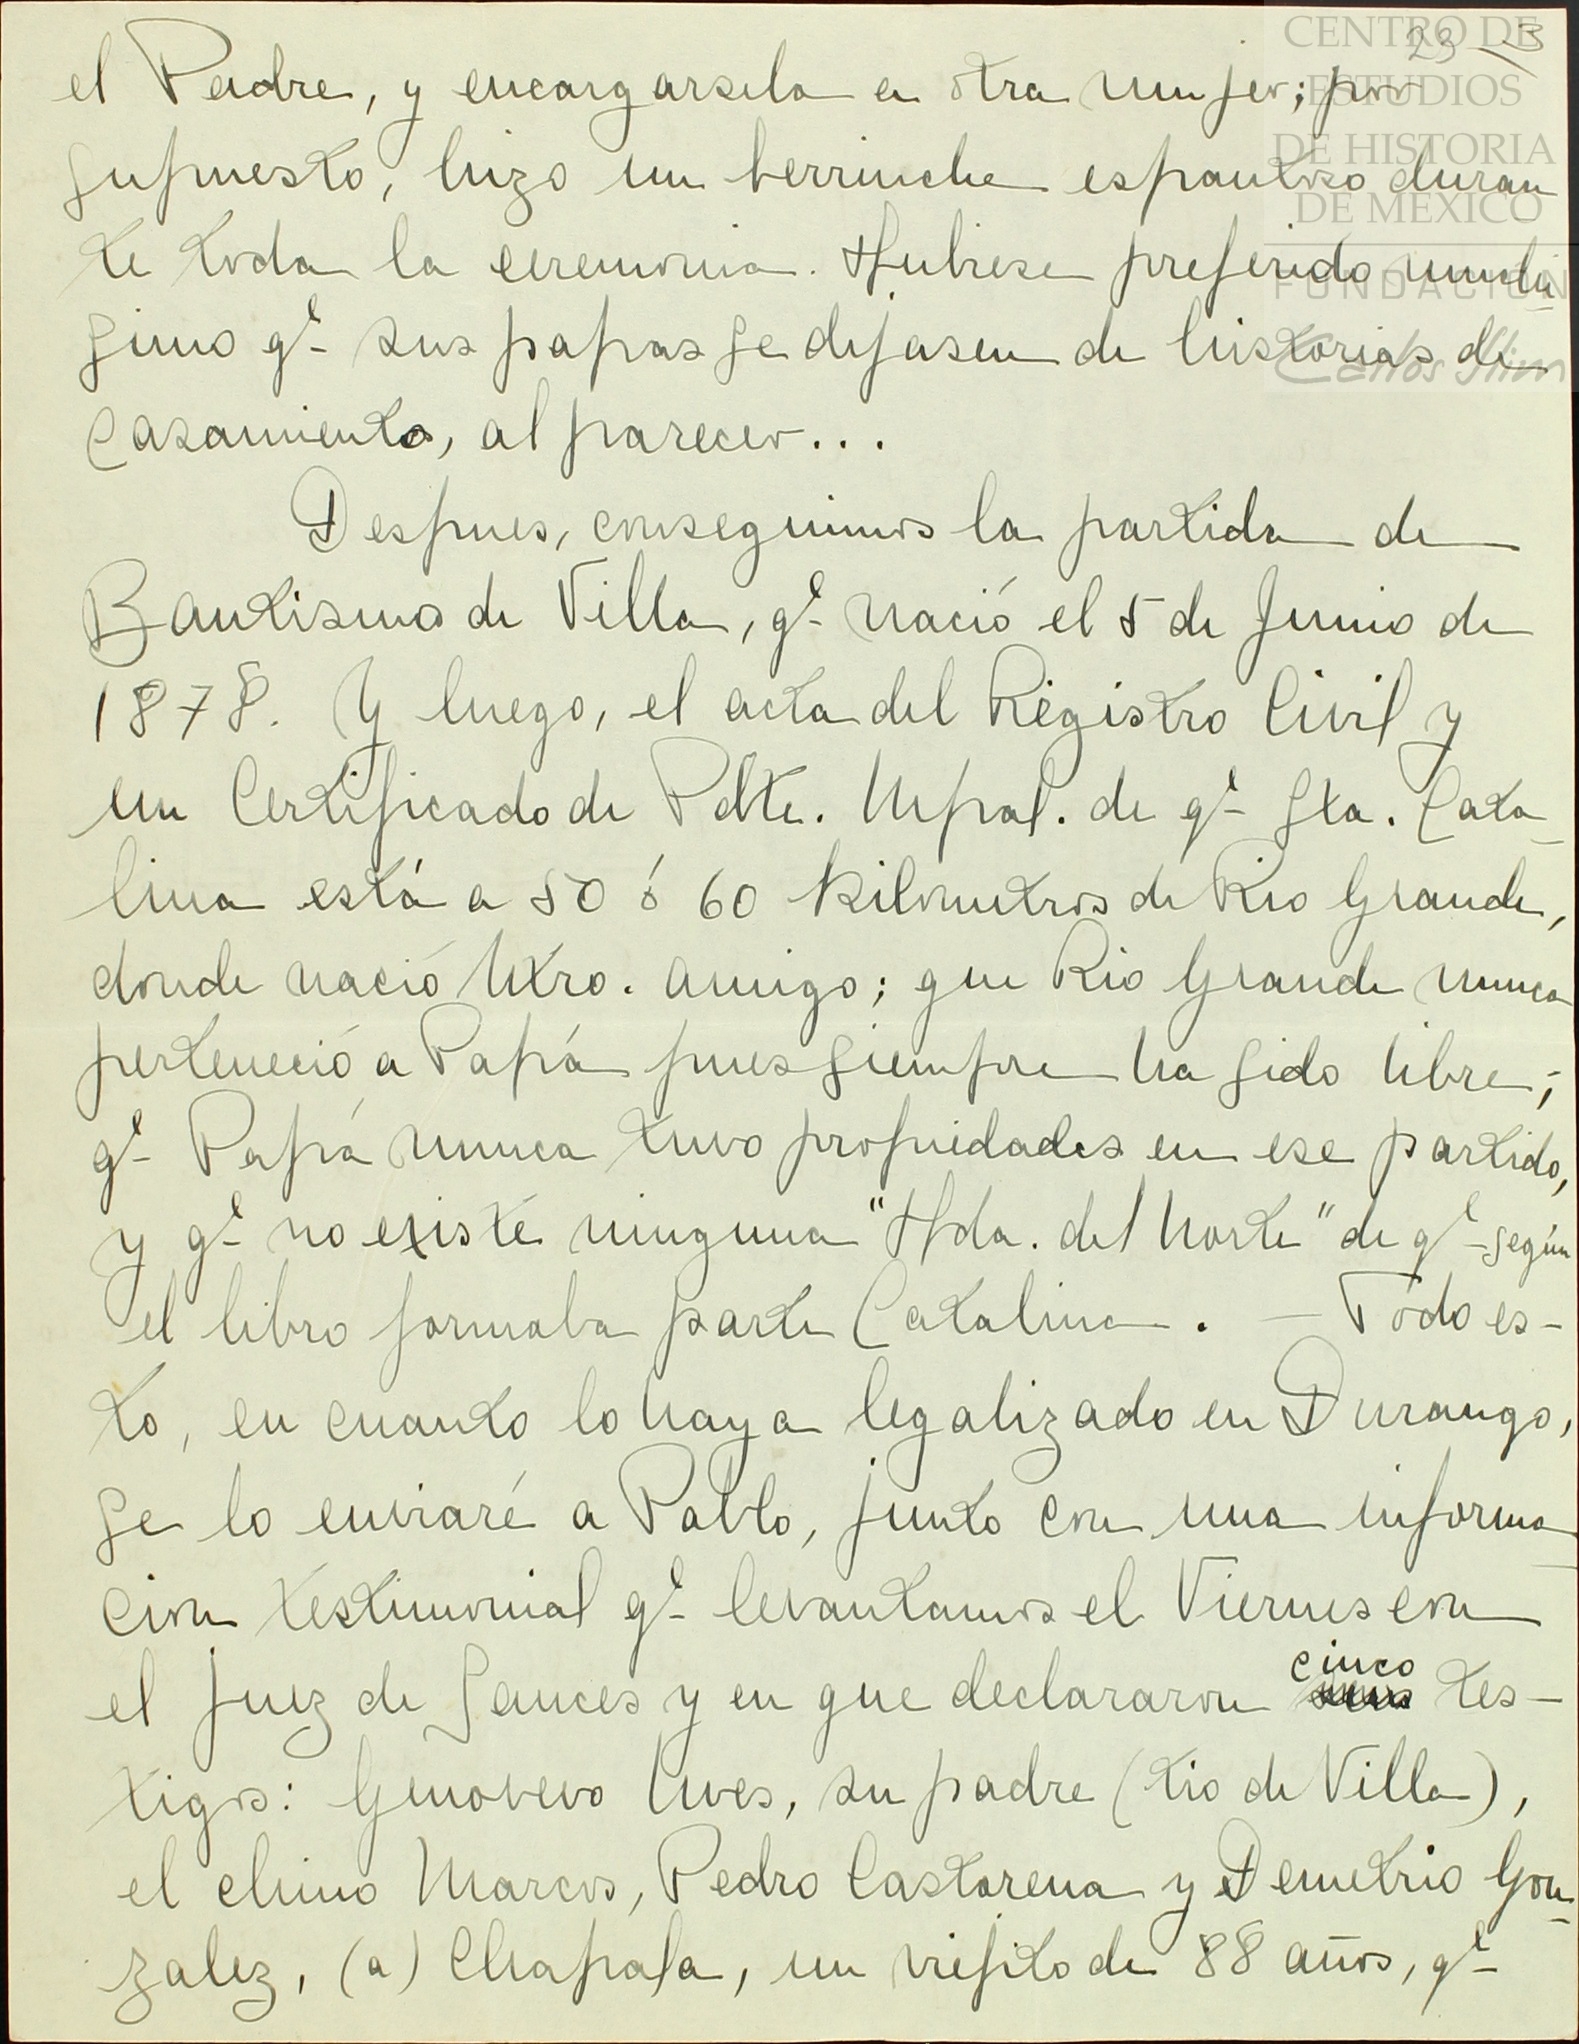 CENTRO DE
ESTUDIOS
DE HISTORIA
DE MEXICO
FUNDACIÓN
Carlos Slim
23
el Padre, y encargarsela a otra mujer; por
supuesto, hizo un berrinche espantoso duran
te toda la ceremonia. Hubiese preferido muchi-
simo qe sus papas se dejasen de historias de
Casamiento, al parecer...
Despues, conseguimos la partida de
Bautismo de Villa, qe nació el 5 de Junio de
1878. Y luego, el acta del Registro Civil y
un Certificado de Pdte. Mpal. de qe Sta. Cata-
lina está a 50 ó 60 Kilometros de Rio Grande,
donde nació Ntro. amigo; que Rio Grande nunca
perteneció a Papá pues siempre ha sido libre;
qe Papá nunca tuvo propiedades en ese partido,
y qe no existe ninguna "Hda. del Norte" de qe según
el libro formaba parte Catalina. — Todo es-
to, en cuanto lo haya legalizado en Durango,
se lo enviaré a Pablo, junto con una informa-
cion testimonial qe levantamos el Viernes con
el Juez de Sauces y en que declararon cinco tes-
tigos: Genovevo Nves, su padre (tio de Villa),
el chino Marcos, Pedro Castorena y Demetrio Gon-
zalez, (a) Chapala, un viejito de 88 años, qe